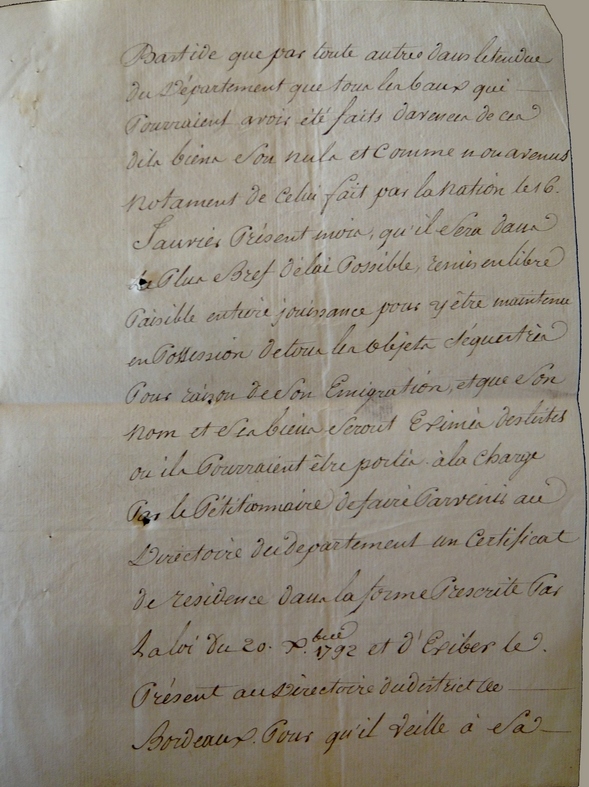 Bastide que par toute autres dans letendue
du Département que tous les baux qui
Pourraient avoir été faits davence de ces
dits biens Son nuls et Comme nonavenus
notament de Celui fait par la Nation le 16.
Janvier Présent mois, qu'il Sera dans
le Plus Bref délai Possible, remis en libre
Paisible entiere jouissance pour y être maintenu
en Possession de tous les objets Séquestrés
Pour raison de Son Emigration, et que Son
nom et Ses biens Seront Exsimés des listes
où ils Pourraient être portés. à la Charge
Par le Pétitionnaire de faire Parvenir au
Directoire du departement un Certificat
de residence dans la forme Prescrite Par
La loi du 20. X.bre 1792 et d'Exiber le
Présent au Directoire du district de
Bordeaux. Pour qu'il Veille à Sa